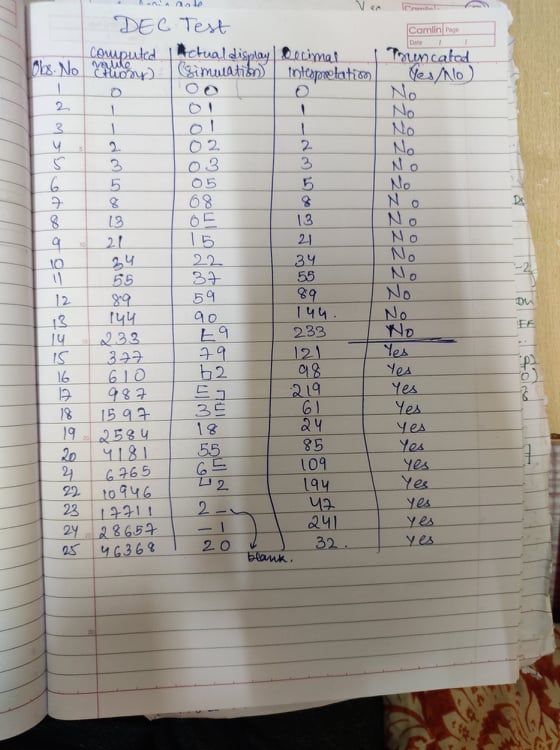 DEC Test
Camlin Page
Date / /
Obs. No | computed value (theory) | Actual display (simulation) | Decimal interpretation | Truncated (Yes/No)
1 0 00 0 No
2 1 01 1 No
3 1 01 1 No
4 2 02 2 No
5 3 03 3 No
6 5 05 5 No
7 8 08 8 No
8 13 0E 13 No
9 21 15 21 No
10 34 22 34 No
11 55 37 55 No
12 89 59 89 No
13 144 90 144. No
14 233 9 233 No
15 377 79 121 Yes
16 610 b2 98 Yes
17 987 219 Yes
18 1597 3E 61 Yes
19 2584 18 24 Yes
20 4181 55 85 Yes
21 6765 6E 109 Yes
22 10946 2 194 Yes
23 17711 2 - 47 Yes
24 28657 - 1 241 Yes
25 46368 20 32. Yes
blank.